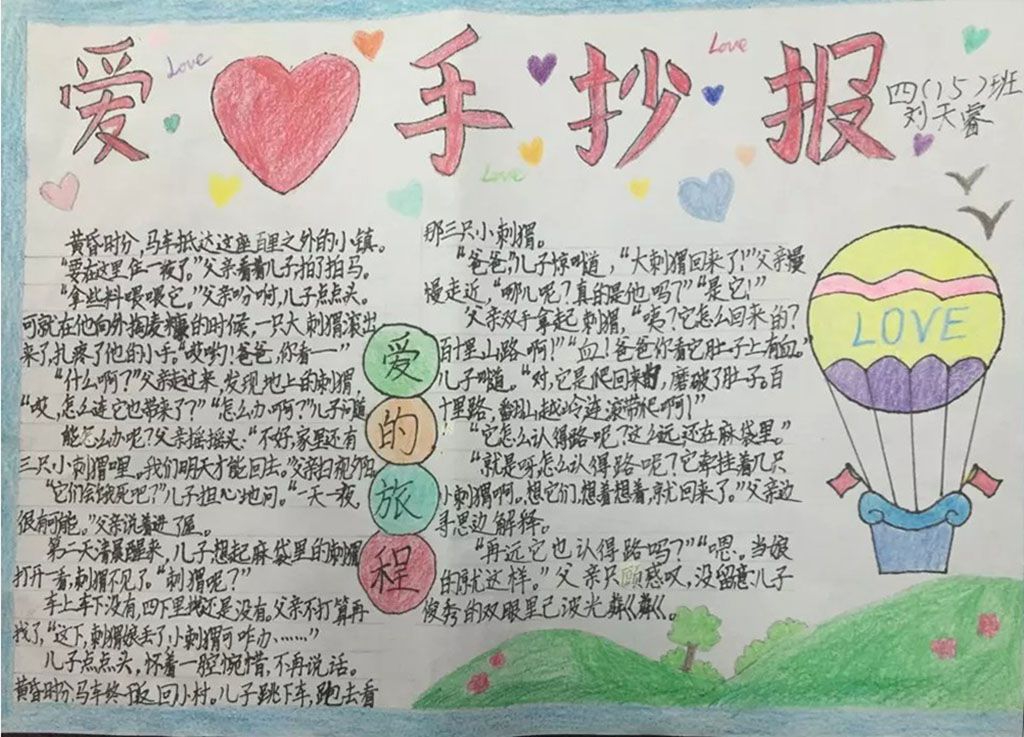 爱手抄报
Love
Love
Love
四(15)班
刘天睿
黄昏时分,马车抵达这座百里之外的小镇。
“要在这里住一夜了。”父亲看着儿子拍了拍马。
“拿些料喂喂它。”父亲吩咐,儿子点点头。
可就在他向外掏麦糠的时候,一只大刺猬滚出
来了,扎疼了他的小手。“哎哟!爸爸,你看——”
“什么啊?”父亲走过来,发现地上的刺猬,
“哎,怎么连它也带来了?”“怎么办啊?”儿子问道
能怎么办呢?父亲摇摇头:“不好,家里还有
三只小刺猬哩。我们明天才能回去。”父亲扫视夕阳
“它们会饿死吧?”儿子担心地问。“一天一夜,
很有可能。”父亲说着进了屋。
第二天清晨醒来,儿子想起麻袋里的刺猬
打开一看,刺猬不见了。“刺猬呢?”
车上车下没有,四下里找还是没有。父亲不打算再
找了,“这下,刺猬娘丢了小刺猬可咋办……”
儿子点点头,怀着一腔惋惜,不再说话。
黄昏时分,马车终于返回小村。儿子跳下车,跑去看
爱的旅程
那三只小刺猬。
“爸爸,”儿子惊叫道,“大刺猬回来了!”父亲慢
慢走近,“哪儿呢?真的是他吗?”“是它!”
父亲双手拿起刺猬,“咦?它怎么回来的?
百十里山路啊!”“血!爸爸你看它肚子上有血。”
儿子叫道。“对,它是爬回来的,磨破了肚子。百
十里路,翻山越岭连滚带爬啊!”
“它怎么认得路呢?这么远,还在麻袋里。”
“就是呀怎么认得路呢?它牵挂着几只
小刺猬啊。想它们,想着想着,就回来了。”父亲边
寻思边解释。
“再远它也认得路吗?”“嗯。当娘
的就这样。”父亲只顾感叹,没留意儿子
俊秀的双眼里已波光粼粼。
LOVE